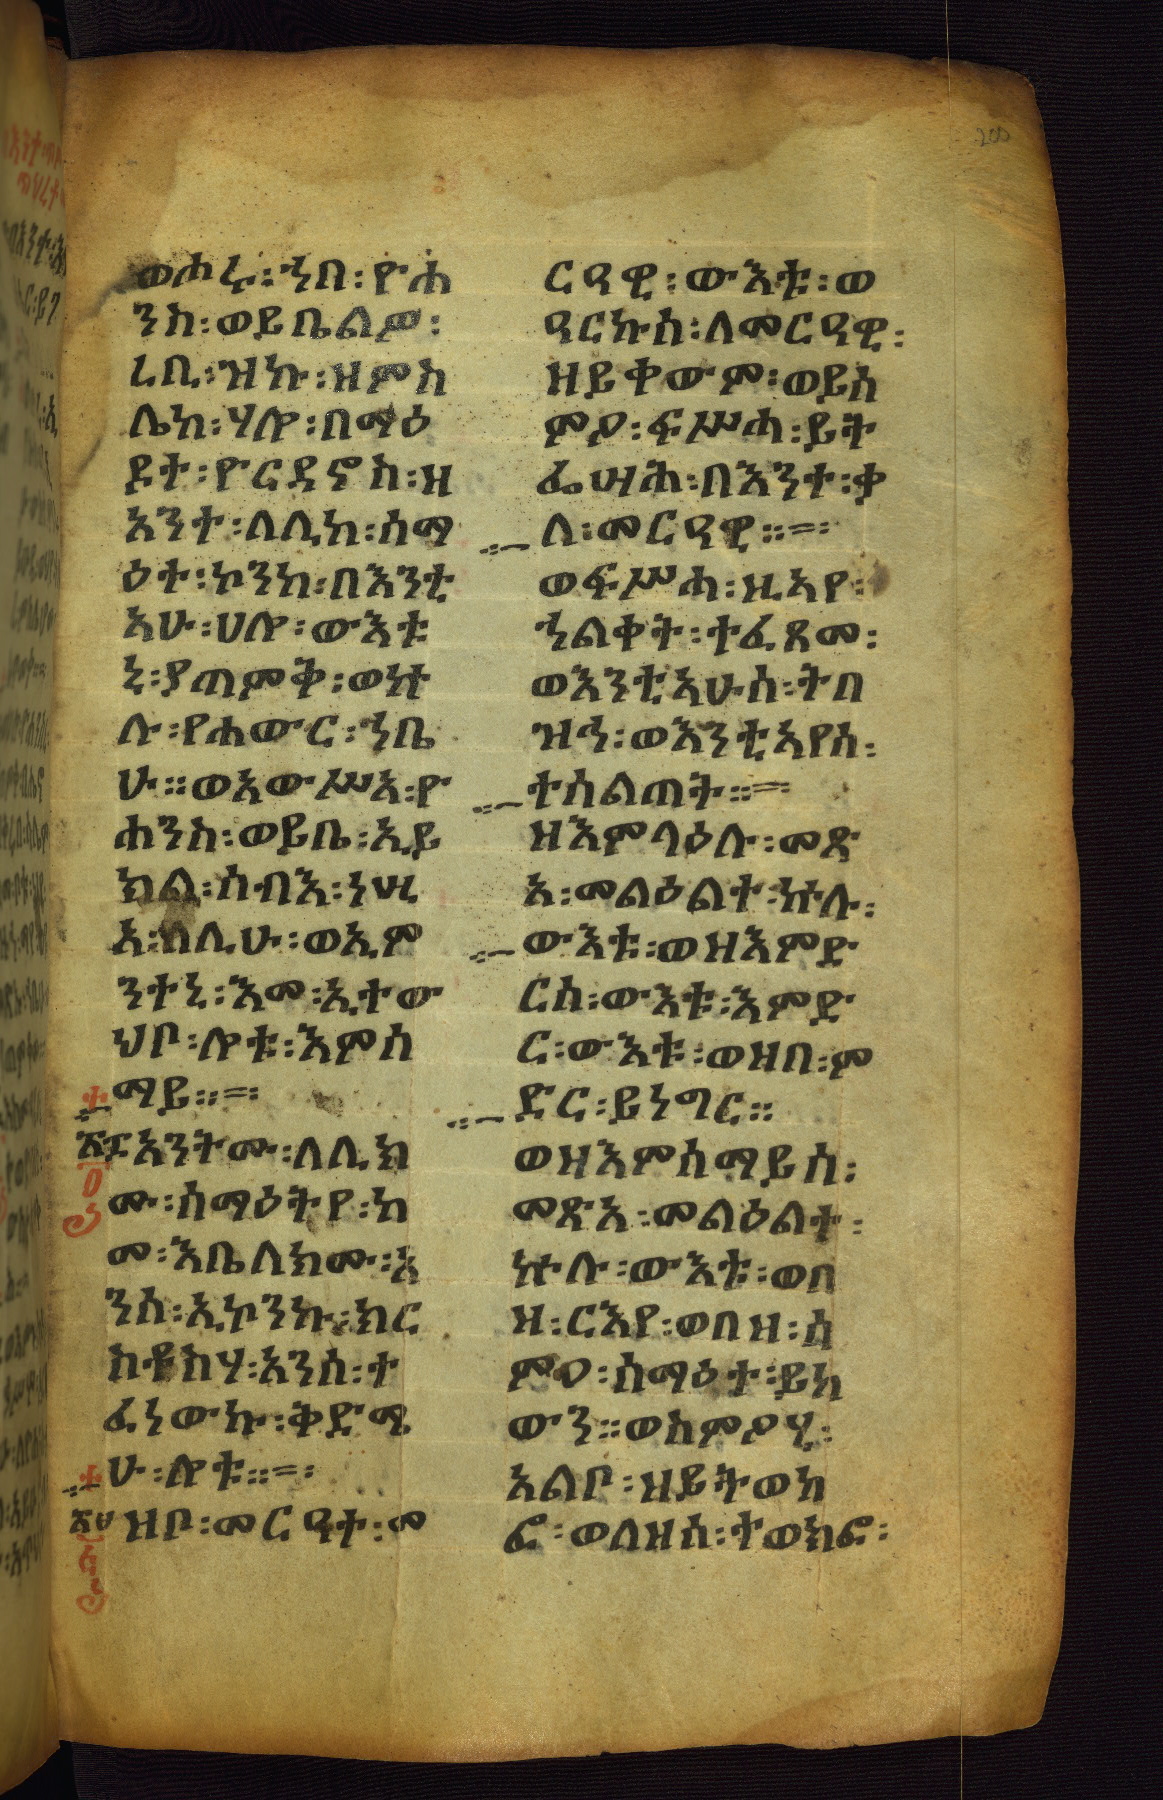 ወሖሩ፡ኀበ፡ዮሐ
ንስ፡ወይቤልዎ፡
ረቢ፡ዝኩ፡ዘምስ
ሌከ፡ሃሎ፡በማዕ
ዶተ፡ዮርዳኖስ፡ዘ
አንተ፡ለሊከ፡ሰማ
ዕተ፡ኮንከ፡በእንቲ
አሁ፡ሀሎ፡ውእቱ
ኒ፡ያጠምቅ፡ወኵ
ሉ፡የሐውር፡ኀቤ
ሁ።ወአውሥአ፡ዮ
ሐንስ፡ወይቤ፡ኢይ
ክል፡ሰብእ፡ነሢ
አ፡ለሊሁ፡ወኢም
ንተኒ፡እመ፡ኢተው
ህቦ፡ሎቱ፡እምሰ
ማይ።
አንትሙ፡ለሊክ
ሙ፡ሰማዕትየ፡ከ
መ፡እቤለክሙ፡አ
ንሰ፡ኢኮንኩ፡ክር
ስቶስሃ፡አንሰ፡ተ
ፈነውኩ፡ቅድሜ
ሁ፡ሎቱ።
ዘቦ፡መርዓተ፡መ
ርዓዊ፡ውእቱ፡ወ
ዓርኩሰ፡ለመርዓዊ፡
ዘይቀውም፡ወይሰ
ምዖ፡ፍሥሓ፡ይት
ፌሣሕ፡በእንተ፡ቃ
ለ፡መርዓዊ።
ወፍሥሓ፡ዚአየ፡
ኀልቀት፡ተፈጸመ፡
ወእንቲአሁሰ፡ትበ
ዝኅ፡ወእንቲአየሰ፡
ተሰልጠት።
ዘእምላዕሉ፡መጽ
አ፡መልዕልተ፡ኵሉ፡
ውእቱ፡ወዘእምድ
ርሰ፡ውእቱ፡እምድ
ር፡ውእቱ፡ወዘበ፡ም
ድር፡ይነግር።
ወዘእምሰማይሰ፡
መጽአ፡መልዕልተ፡
ኵሉ፡ውእቱ፡ወበ
ዘ፡ርእየ፡ወበዘ፡ሰ
ምዐ፡ሰማዕተ፡ይከ
ውን።ወስምዖሂ፡
አልቦ፡ዘይትወከ
ፎ፡ወለዘሰ፡ተወክፎ፡
200